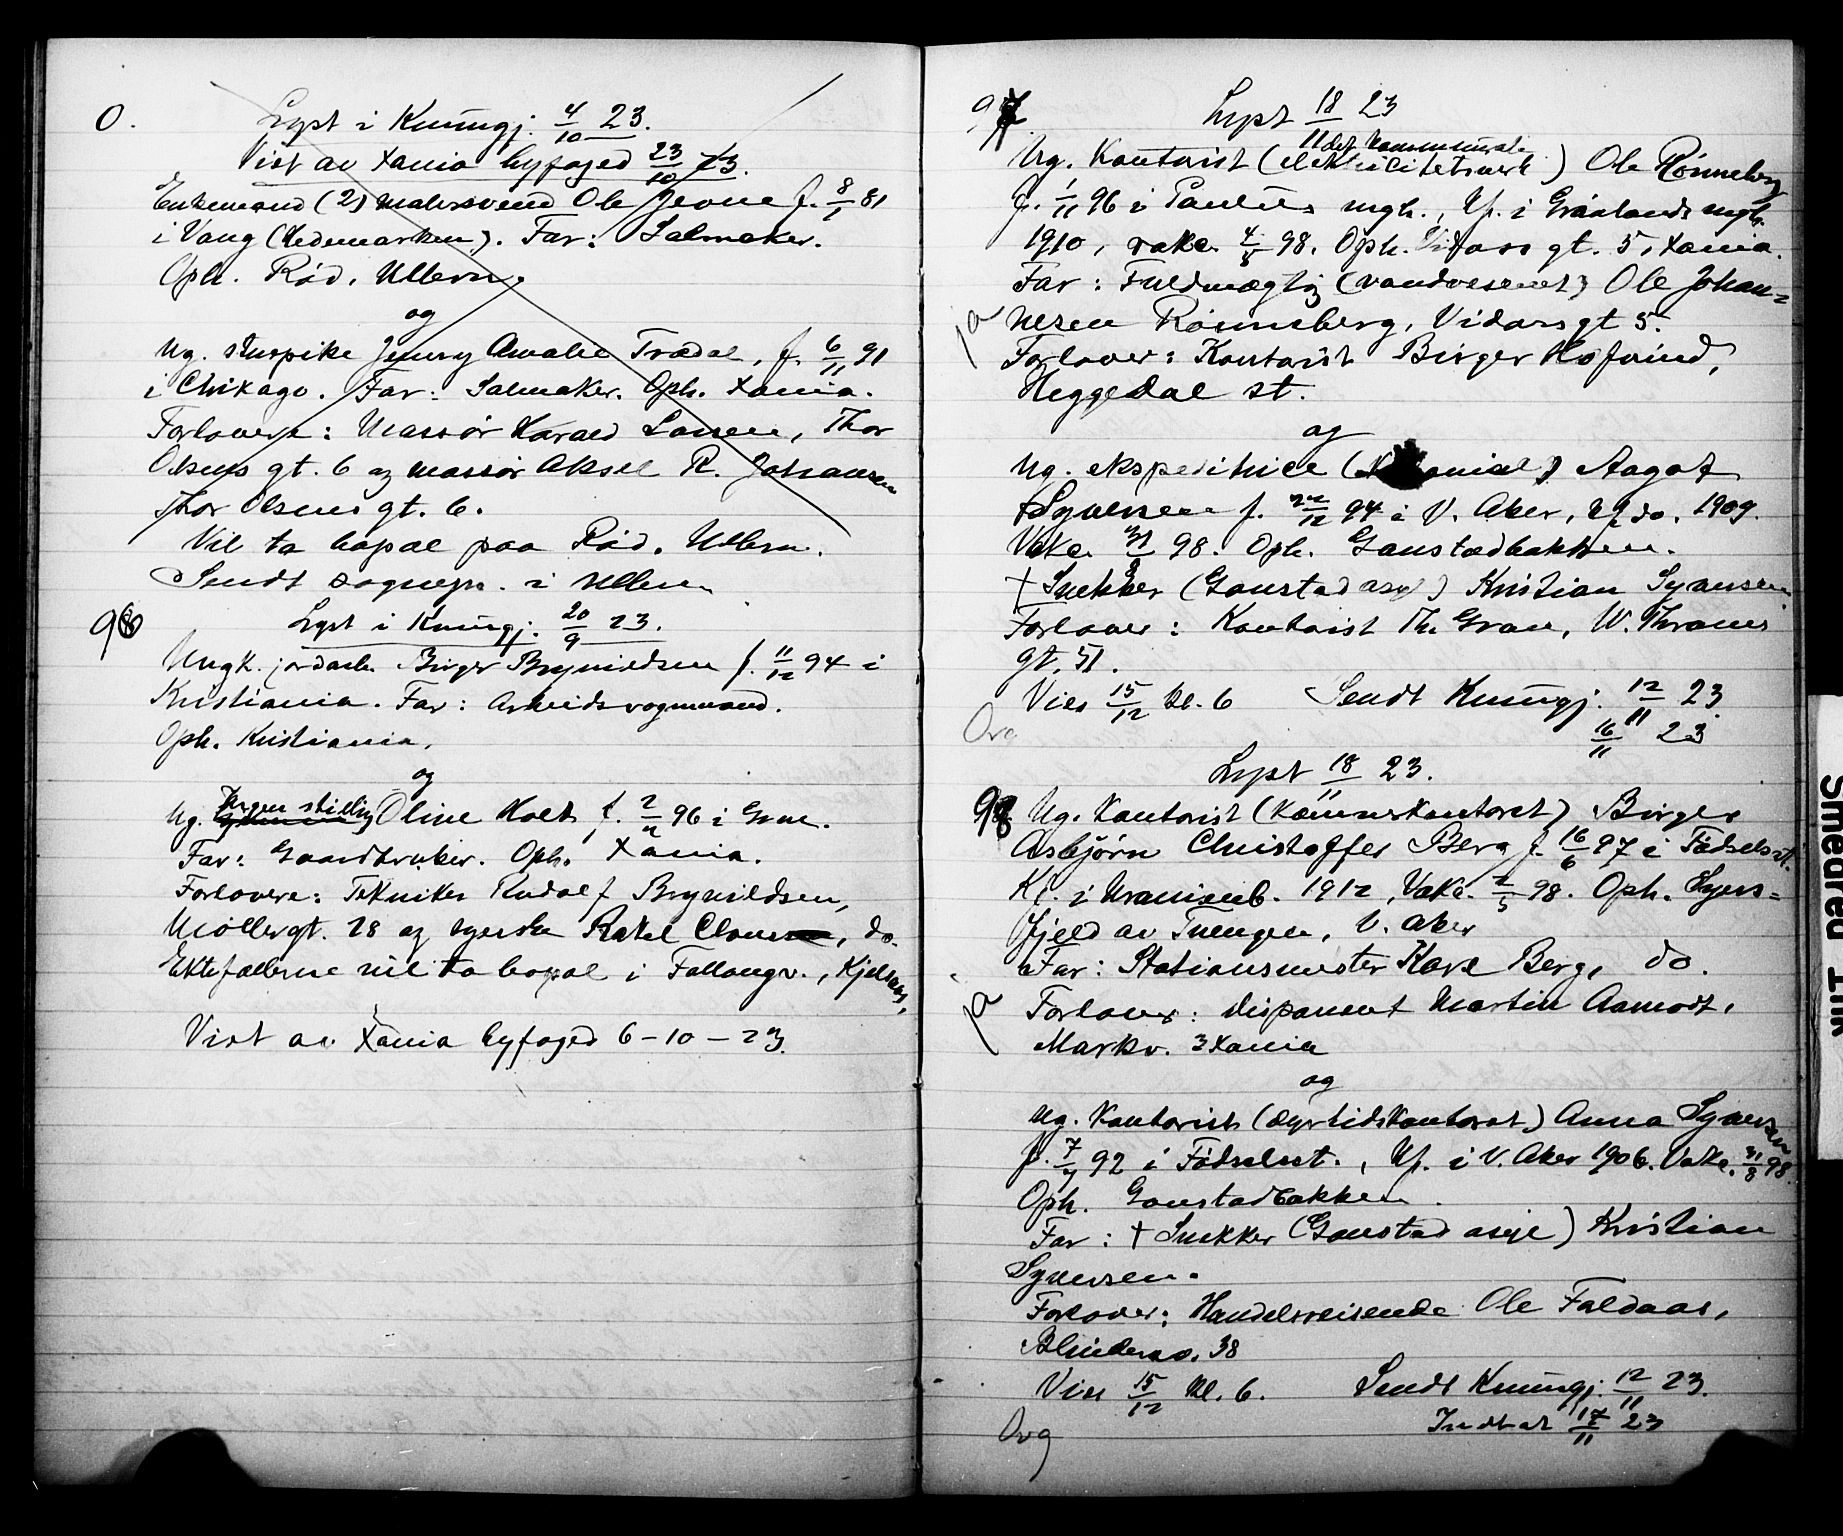 0.
Lyst i Kunngj. 4/10 23.
Vist av Xania byfoged 23/10 23.
Enkemand (2) malersvend Ole Jevne f. 8/1 81
i Vang (Hedemarken). Far: Salmaker.
Oph. Röd, Ullern.
og
Ug. Jenny Amalie Trædal, f. 6/11 91
i Chikago. Far: Salmaker. Oph. Xania.
Forlovere: Massör Harald Larsen, Thor
Olsens gt. 6 og massör Aksel R. Johansen
Thor Olsens gt. 6.
Vil ta bopæl paa Röd, Ullern.
Sendt sognepr. i Ullern
96
Lyst i Kunngj. 20/9 23.
Ungk. jordarb. Birger Brynildsen f. 11/12 94 i
Kristiania. Far: Arbeidsvogmand.
Oph. Kristiania.
og
Ug. Ingen stilling Oline Holt f. 2/ 96 i Gran.
Far: Gaardbruker. Oph. Xania.
Forlovere: Tekniker Rudolf Brynildsen,
Möllergt. 28 og syerske Rakel, do.
Ektefællerne vil ta bopæl i Fallangv., Kjelsaas.
Vist av Xania byfoged 6-10-23.
97
Lyst 18/11 23
det kommunale
Ug. Kontorist (elektricitetsverk) Ole Rönneberg
f. 1/11 96 i Paulus mgh., Kf. i Grönlands mgh.
1910, vakc. 4/5 98. Oph. Vidars gt. 5, Xania.
Far: Fuldmægtig (vandvesenet) Ole Johan-
ja nesen Rönneberg, Vidarsgt 5.
Forlover: Kontorist Birger Hofvind,
Heggedal st.
og
Ug. ekspeditrice (Kolonial) Aagot
Syversen f. 22/12 94 i V. Aker, Kf do. 1909.
Vakc. 31/8 98. Oph. Gaustadbakken.
† Snekker (Gaustad asyl) Kristian Syversen.
Forlover: Kontorist Th. Gran, W. Thranes
gt. 51.
Vies 15/12 kl. 6 Sendt Kunngj. 12/11 23
16/11 23
Org
Lyst 18/11 23.
98 Ug. Kontorist (Kæmnerkontoret) Birger
Asbjörn Christoffer Berg f. 16/6 97 i Födselsst.
Kf. i Uranienb. 1912, Vakc. 2/5 98. Oph. Syvers-
fjeld av Tuengen, V. Aker
Far: Stationsmester Karl Berg, do.
ja Forlover: disponent Martin Aamodt,
Markv. 3 Xania
og
Ug. Kontorist (dyrtidskontoret) Anna Syversen
f. 7/7 92 i Födselsst., Kf. i V. Aker 1906. Vakc. 31/8 98.
Oph. Gaustadbakken.
Far: † Snekker (Gaustad asyl) Kristian
Syversen.
Forlover: Handelsreisende Ole Faldaas,
Blindernv. 38
Vies 15/12 kl. 6. Sendt Kunngj. 12/11 23.
Indtat 17/11 23
Org
Smedrud 1nk